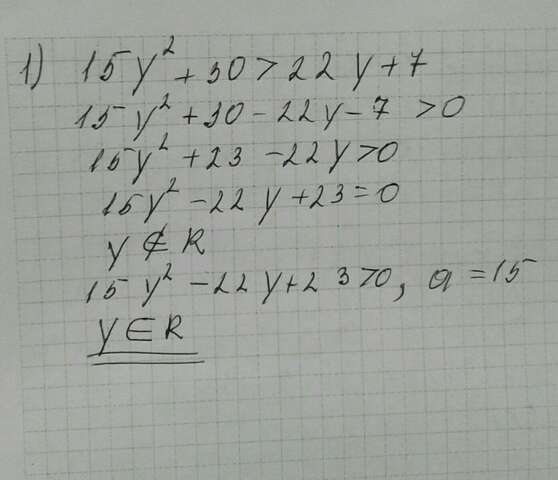 1) 15y² + 30 > 22y + 7
15y² + 30 - 22y - 7 > 0
15y² + 23 - 22y > 0
15y² - 22y + 23 = 0
y ∉ R
15y² - 22y + 23 > 0, a = 15
y ∈ R